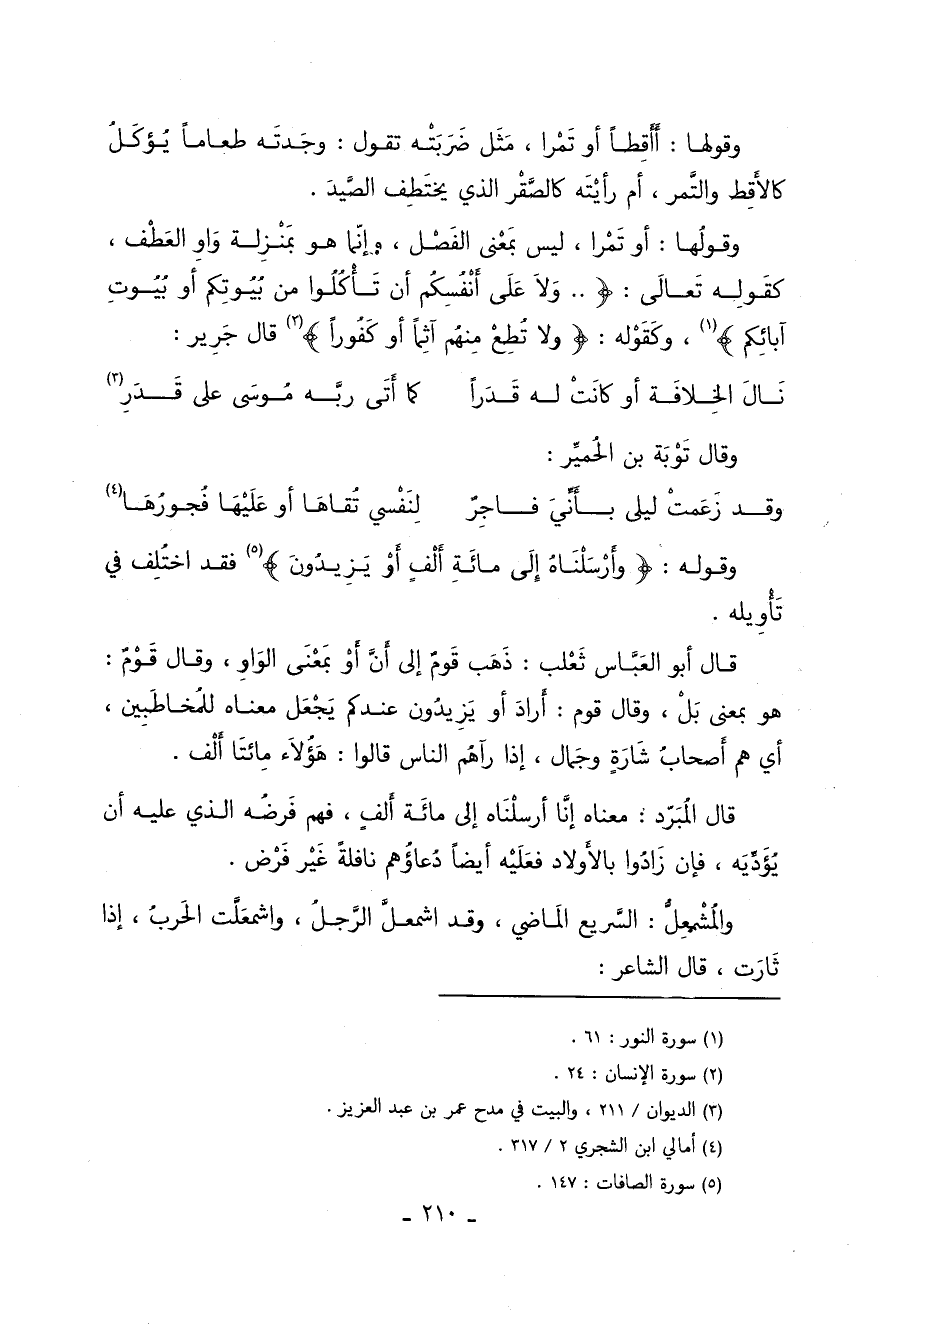 وقولها : أَأَقِطاً أو تَمْرا ، مَثَل ضَرَبَتْه تقول : وجَدتَه طعاماً يُؤكَلُ
كالأَقِط والتَّمر ، أم رأيْتَه كالصَّقْر الذي يختَطِف الصَّيدَ .
وقولُها : أو تَمْرا ، ليس بمَعْنى الفَصْل ، وإنَّما هو بمَنْزِلة وَاوِ العَطْف ،
كقوله تَعالَى : ﴿ .. وَلاَ عَلَى أَنْفُسِكُم أن تَأْكُلُوا من بُيُوتكم أو بُيُوتِ
آبائِكم ﴾(١) ، وكَقَوْله : ﴿ ولا تُطِعْ مِنهُم آثِماً أو كَفُوراً ﴾(٢) قال جَرير :
نَالَ الخِلافَة أو كانَتْ له قَدَراً كما أَتَى ربَّه مُوسَى على قَدَرِ(٣)
وقال تَوْبَة بن الحُميِّر :
وقد زَعَمتْ ليلى بأَنِّيَ فاجِرٌ لِنَفْسي تُقاهَا أو عَلَيْهَا فُجورُهَا(٤)
وقوله : ﴿ وأَرْسَلْنَاهُ إِلَى مائَةِ أَلْفٍ أَوْ يَزِيدُونَ ﴾(٥) فقد اختُلِف في
تَأْوِيله .
قال أبو العَبَّاس ثَعْلب : ذَهَب قَومٌ إلى أَنَّ أَوْ بمَعْنَى الوَاوِ ، وقال قَوْمٌ :
هو بمعنى بَلْ ، وقال قوم : أَرادَ أو يَزِيدُون عندكم يَجْعَل معناه للمُخاطَبِين ،
أي هم أَصحابُ شَارَةٍ وجَمال ، إذا رآهُم الناس قالوا : هَؤُلاَء مِائتَا أَلْف .
قال المُبَرّد : معناه إنَّا أرسلْنَاه إلى مائَة أَلفٍ ، فهم فَرضُه الذي عليه أن
يُؤَدِّيَه ، فإن زَادُوا بالأَولاد فعَلَيْه أيضاً دُعاؤُهم نافلةً غَيْر فَرْض .
والمُشْمَعِلُّ : السَّريع المَاضي ، وقد اشمعلَّ الرَّجلُ ، واشمعَلَّت الحَربُ ، إذا
ثَارَت ، قال الشاعر :
(١) سورة النور : ٦١ .
(٢) سورة الإنسان : ٢٤ .
(٣) الديوان / ٢١١ ، والبيت في مدح عمر بن عبد العزيز .
(٤) أمالي ابن الشجري ٢ / ٣١٧ .
(٥) سورة الصافات : ١٤٧ .
- ٢١٠ -